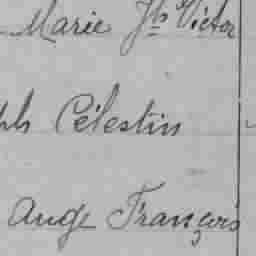 Marie Jh Victor
ph Célestin
Ange François